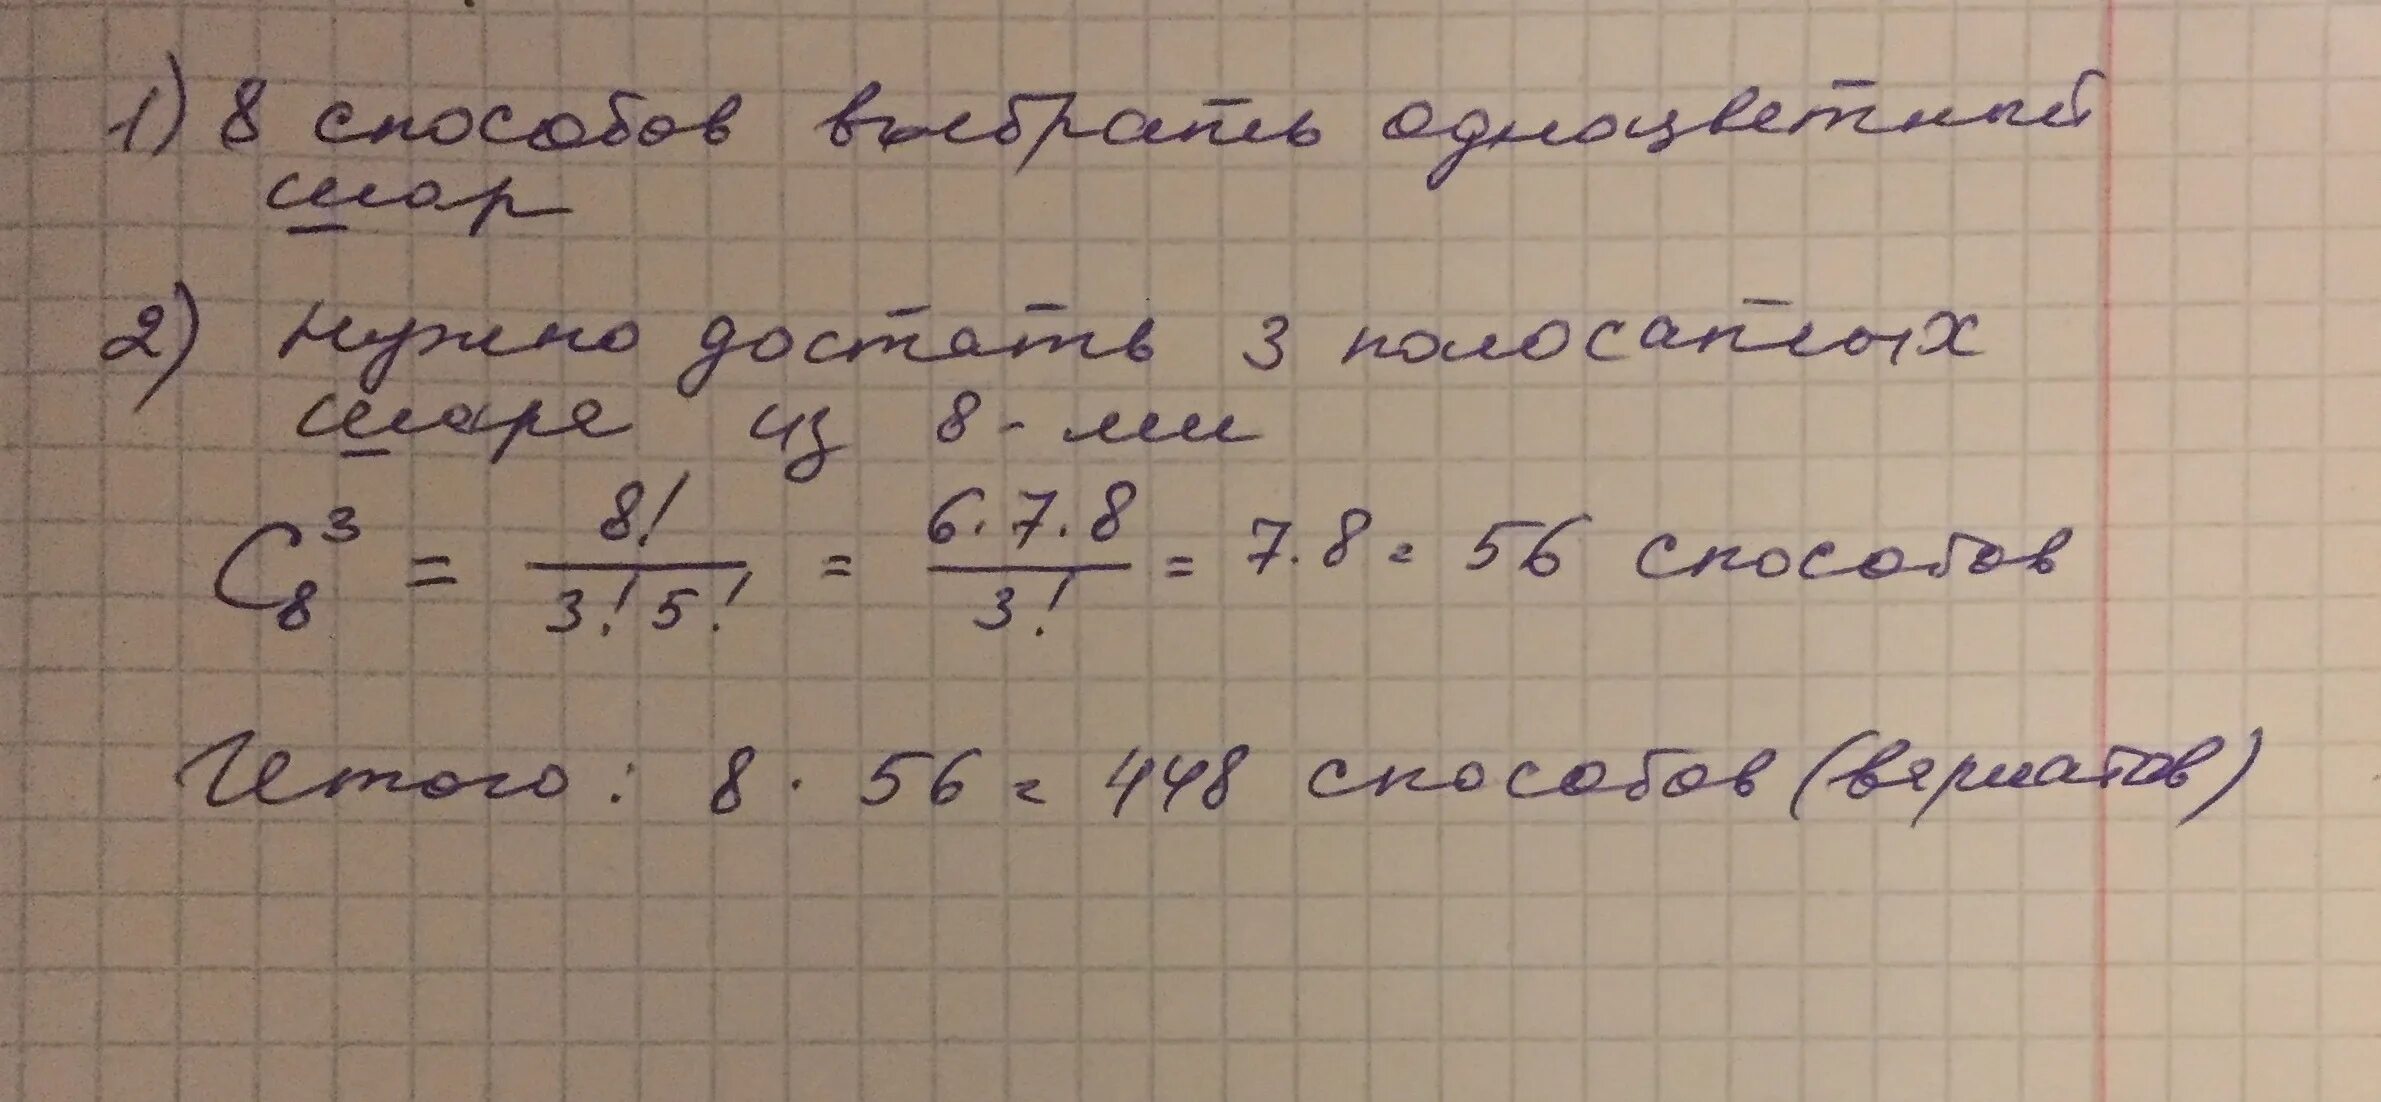 1) 8 способов выбрать одноцветный
шар
2) нужно достать 3 полосатых
шара из 8-ми
C₈³ = 8! / 3! 5! = 6·7·8 / 3! = 7·8 = 56 способов
Итого: 8 · 56 = 448 способов (вариатов)